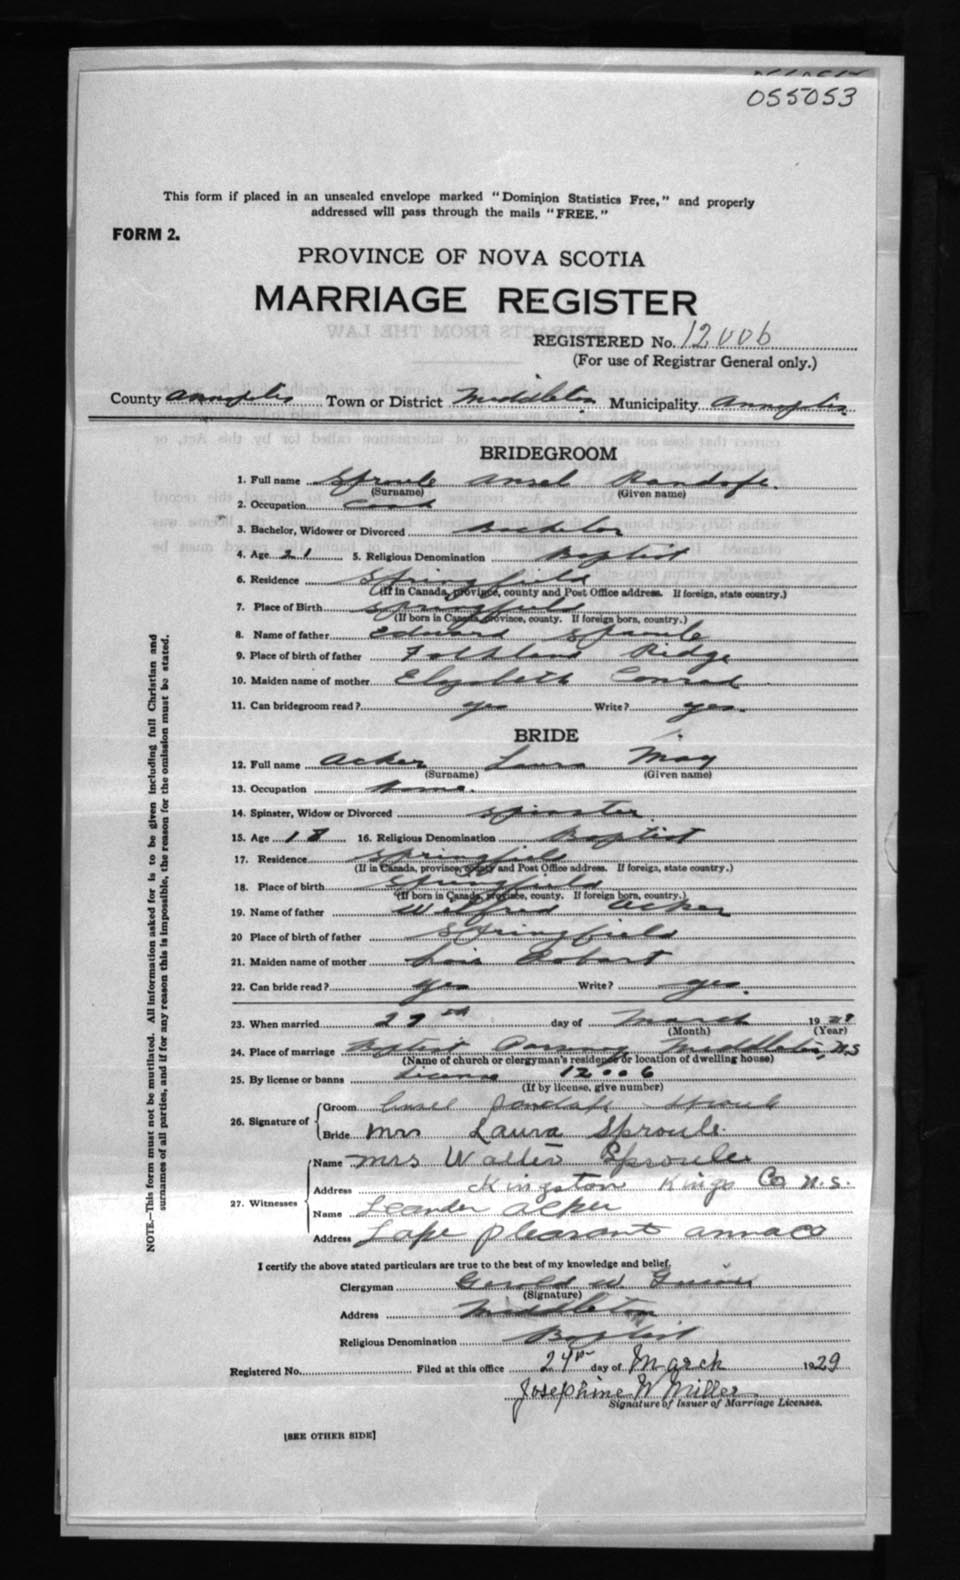 055053
This form if placed in an unsealed envelope marked "Dominion Statistics Free," and properly
addressed will pass through the mails "FREE."
FORM 2.
PROVINCE OF NOVA SCOTIA
MARRIAGE REGISTER
REGISTERED No. 12006
(For use of Registrar General only.)
County Annapolis Town or District Middleton Municipality Annapolis
BRIDEGROOM
1. Full name Sproule Ansel
(Surname) (Given name)
2. Occupation Cook
3. Bachelor, Widower or Divorced Bachelor
4. Age 21 5. Religious Denomination Baptist
6. Residence Springfield
(If in Canada, province, county and Post Office address. If foreign, state country.)
7. Place of Birth Springfield
(If born in Canada, province, county. If foreign born, country.)
8. Name of father Edward Sproule
9. Place of birth of father Falkland Ridge
10. Maiden name of mother Elizabeth Conrad
11. Can bridegroom read? yes Write? yes.
BRIDE
12. Full name Acker Laura May
(Surname) (Given name)
13. Occupation
14. Spinster, Widow or Divorced Spinster
15. Age 18 16. Religious Denomination Baptist
17. Residence Springfield
(If in Canada, province, county and Post Office address. If foreign, state country.)
18. Place of birth Springfield
(If born in Canada, province, county. If foreign born, country.)
19. Name of father Wilfred Acker
20 Place of birth of father Springfield
21. Maiden name of mother
22. Can bride read? yes Write? yes.
23. When married day of March 1929
(Month) (Year)
24. Place of marriage Baptist Middleton, N.S
(Name of church or clergyman's residence or location of dwelling house)
25. By license or banns License 12006
(If by license, give number)
26. Signature of
Groom Ansel Sproule
Bride Mrs Laura Sproule.
27. Witnesses
Name Mrs Walter Sproule
Address Kingston Kings Co N.S.
Name Leander Acker
Address Lake Pleasant Anna Co
I certify the above stated particulars are true to the best of my knowledge and belief.
Clergyman Gerold W
(Signature)
Address Middleton
Religious Denomination Baptist
Registered No. Filed at this office day of March 1929
Josephine W Miller.
Signature of Issuer of Marriage Licenses.
[SEE OTHER SIDE]
NOTE—This form must not be mutilated. All information asked for is to be given including full Christian and
surnames of all parties, and if for any reason this is impossible, the reason for the omission must be stated.